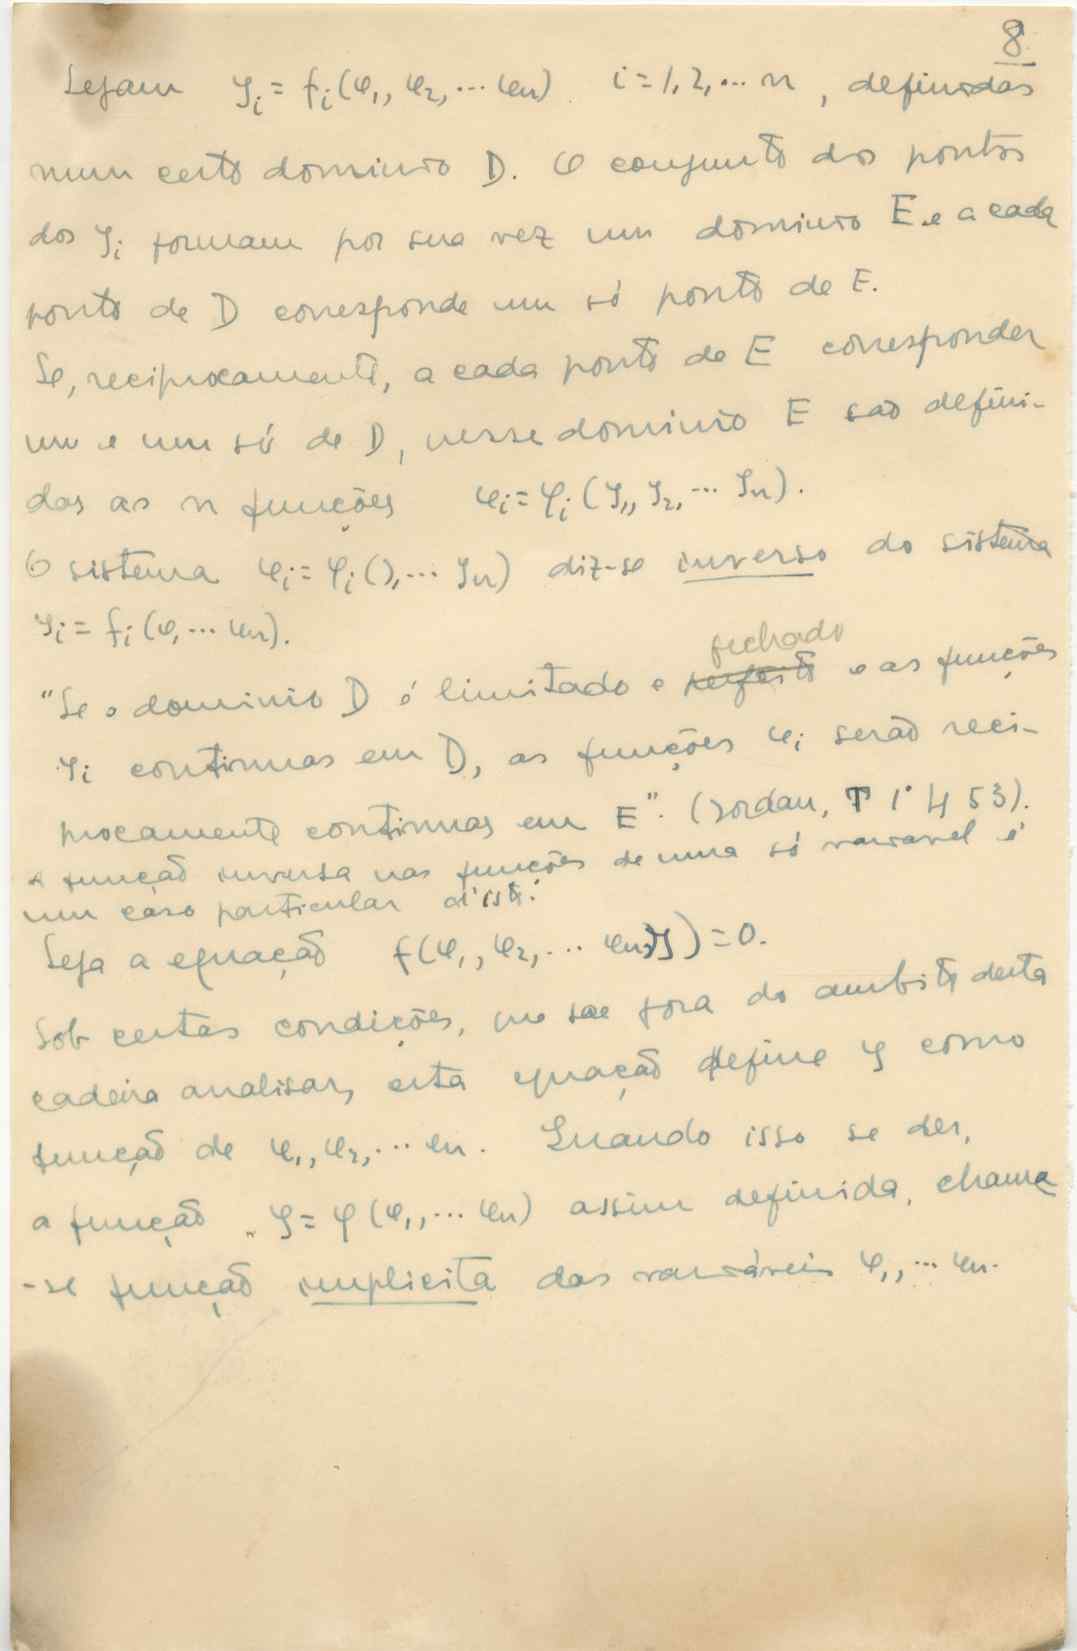 8.
Sejam y_i = f_i(x_1, x_2, ... x_n) i = 1, 2, ... n, definidas
num certo dominio D. O conjunto dos pontos
dos y_i formam por sua vez um dominio E e a cada
ponto de D corresponde um só ponto de E.
Se, reciprocamente, a cada ponto de E corresponder
um e um só de D, nesse dominio E são defini-
das as n funções x_i = φ_i(y_1, y_2, ... y_n).
O sistema x_i = φ_i(y, ... y_n) diz-se inverso do sistema
y_i = f_i(x, ... x_n).
fechado
"Se o dominio D é limitado e perfeito e as funções
y_i continuas em D, as funções x_i serão reci-
procamente continuas em E". (Jordan, T 1º 53).
A função inversa nas funções de uma só variavel é
um caso particular d'isto.
Seja a equação f(x_1, x_2, ... x_n, y) = 0.
Sob certas condições, que sae fora do ambito desta
cadeira analisar, esta equação define y como
função de x_1, x_2, ... x_n. Quando isso se der,
a função y = φ(x_1, ... x_n) assim definida, chama
-se função implicita das variáveis x_1, ... x_n.